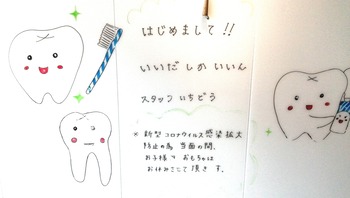 はじめまして!!
いいだしかいいん
スタッフいちどう
※新型コロナウイルス感染拡大
防止の為 当面の間、
お子様のおもちゃは
お休みにして頂きます。